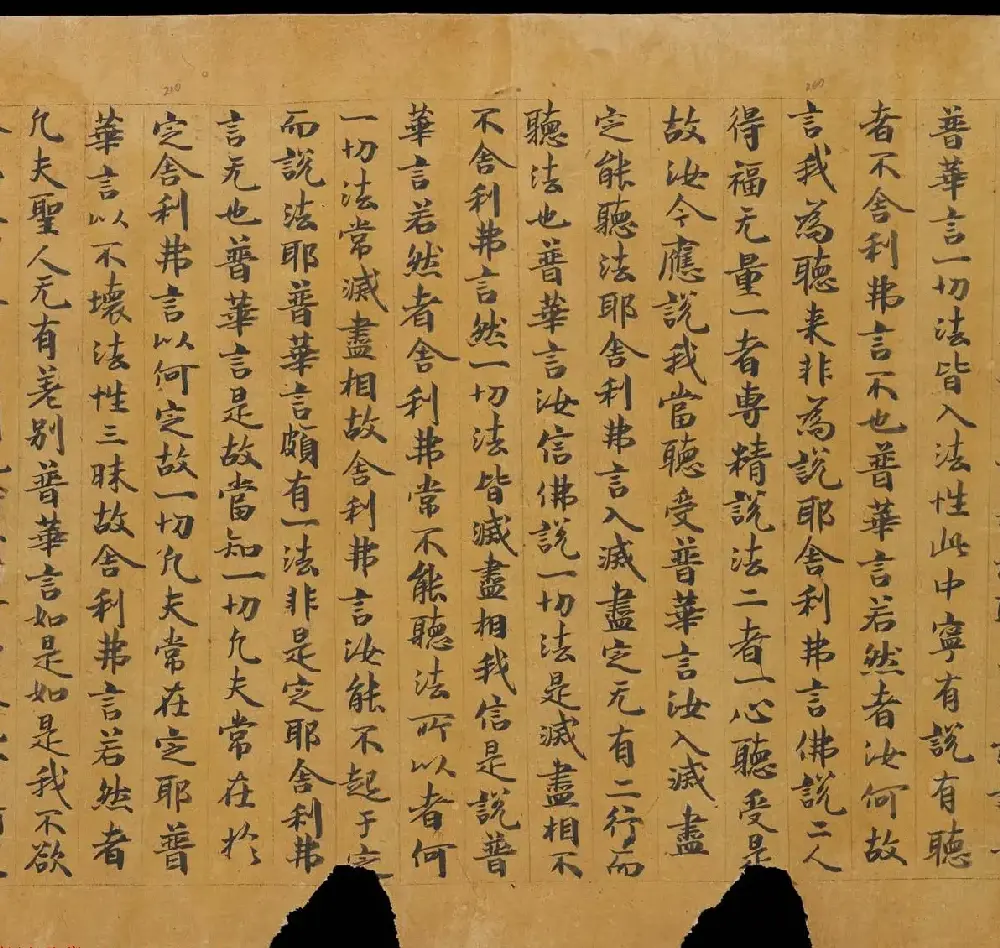 普華言一切法皆入法性此中寧有說有聽
者不舍利弗言不也普華言若然者汝何故
言我為聽来非為說耶舍利弗言佛說二人
得福无量一者專精說法二者一心聽受是
故汝今應說我當聽受普華言汝入滅盡
定能聽法耶舍利弗言入滅盡定无有二行而
聽法也普華言汝信佛說一切法是滅盡相不
不舍利弗言然一切法皆滅盡相我信是說普
華言若然者舍利弗常不能聽法所以者何
一切法常滅盡相故舍利弗言汝能不起于定
而說法耶普華言頗有一法非是定耶舍利弗
言无也普華言是故當知一切凡夫常在於
定舍利弗言以何定故一切凡夫常在定耶普
華言以不壞法性三昧故舍利弗言若然者
凡夫聖人无有差別普華言如是如是我不欲